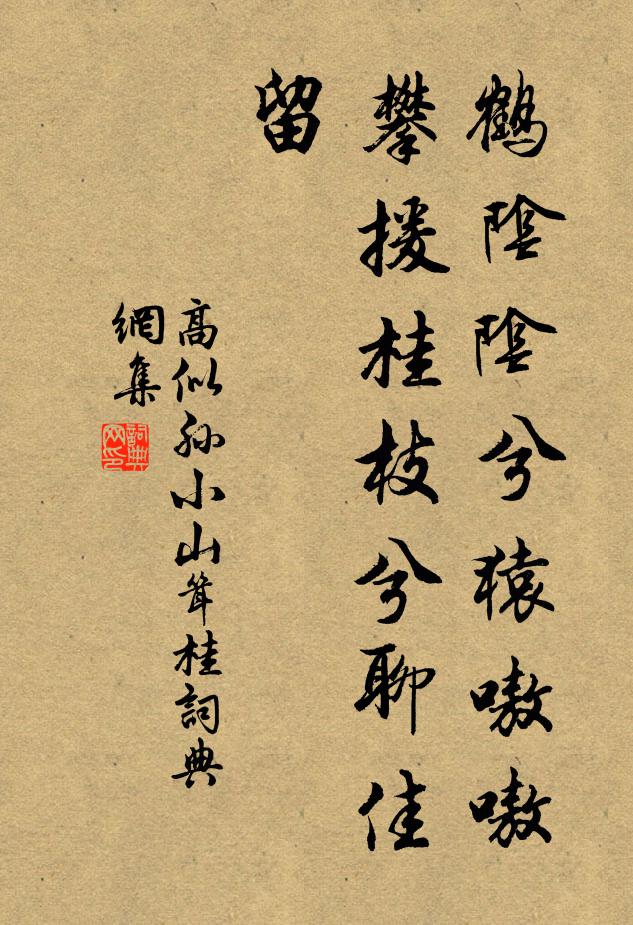 鶴陰陰兮猿嗷嗷
攀援桂枝兮聊佳
留
高似孫小山丛桂詞典
網集
詞典
网印